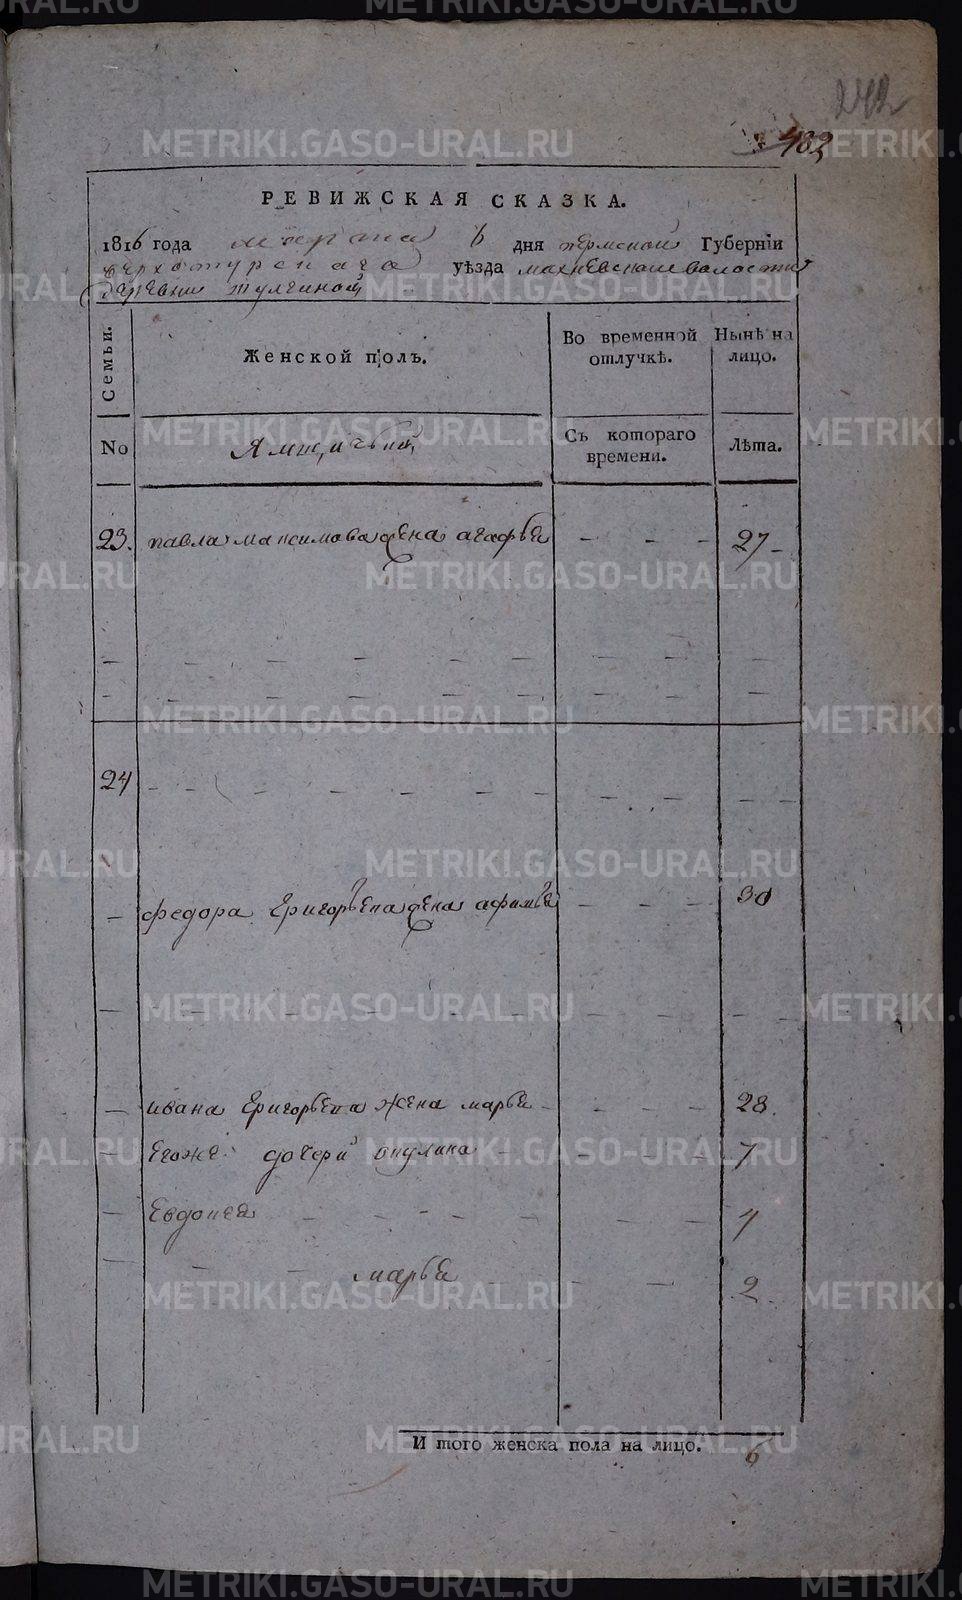 242
482
РЕВИЖСКАЯ СКАЗКА.
1816 года марта 6 дня пермской Губернїи
верхотурскаго уѣзда махневской волости
деревни тулчиной
Семьи. Женской полъ. Во временной отлучкѣ. Нынѣ на лицо.
No Ямщичьей Съ котораго времени. Лѣта.
23. павла максимова жена агафья - - - 27
24
федора григорьева жена афимья - - - 30
ивана григорьева жена марья - - - 28.
егоже дочери акулина - - - 7
Евдокея - - - 4
марья - - 2
И того женска пола на лицо. 6
METRIKI.GASO-URAL.RU